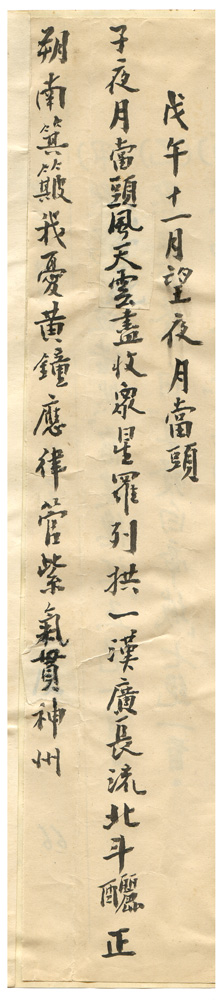 戊午十一月望夜月當頭
子夜月當頭風天雲盡收衆星羅列拱一漢廣長流北斗釃正
朔南箕簸我憂黄鐘應律管紫氣貫神州